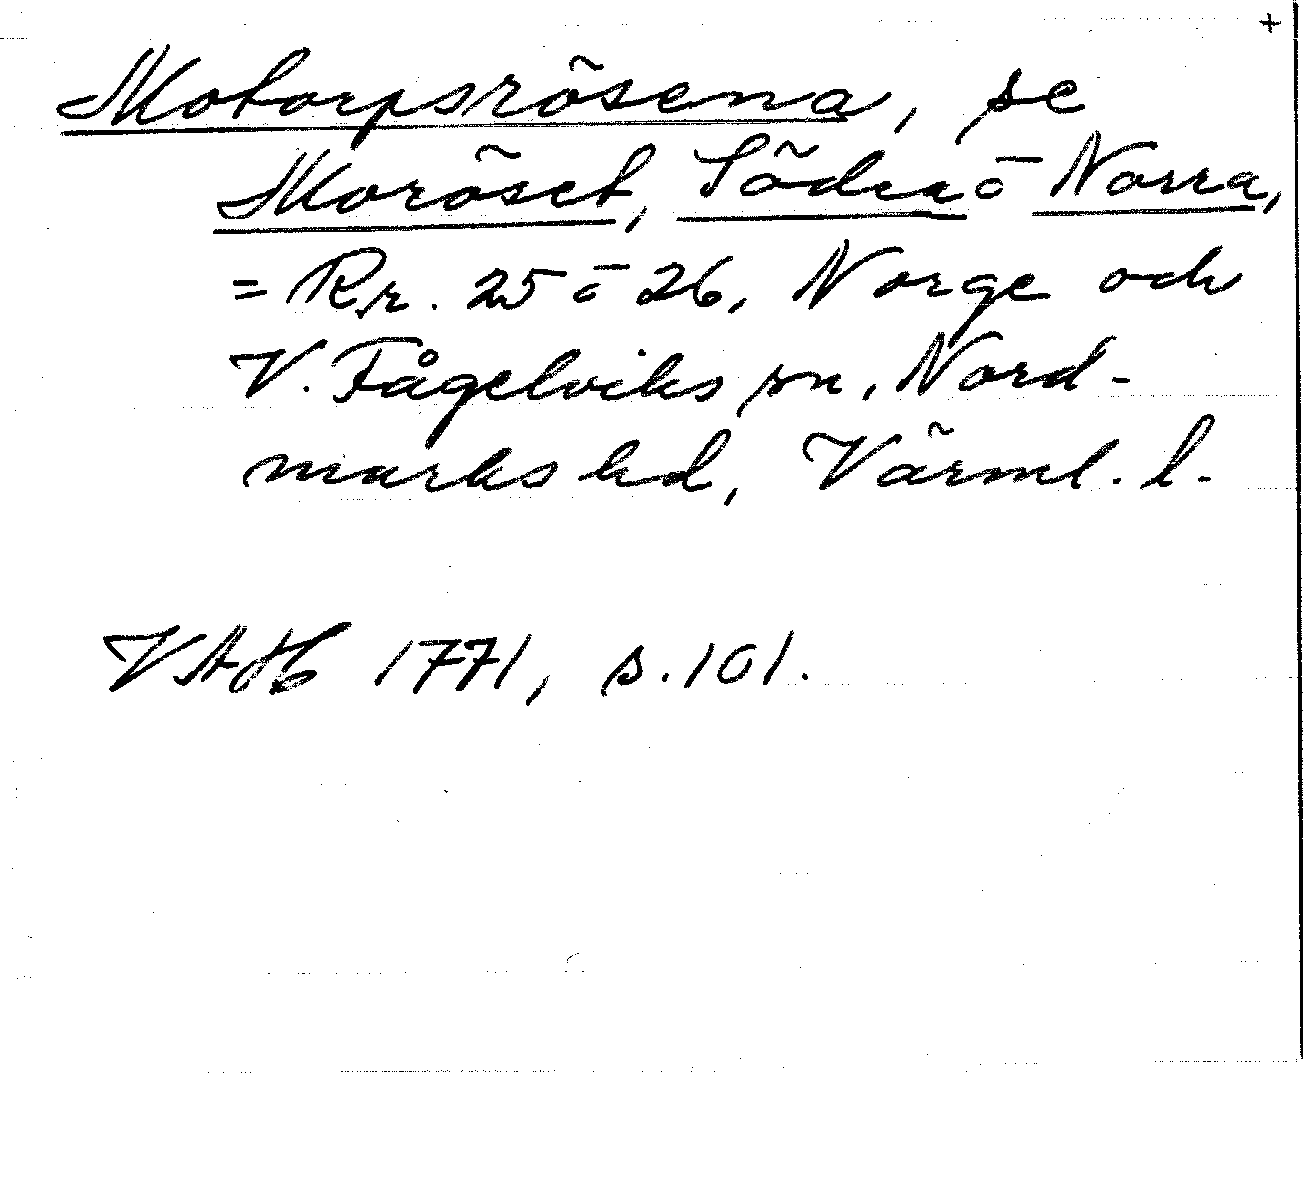 +
Motorpsrösena, se
Moröset, Södra o Norra,
= Rr. 25 o 26, Norge och
V. Fågelviks sn, Nord-
marks hd, Värml. l.
VAH 1771, s. 101.